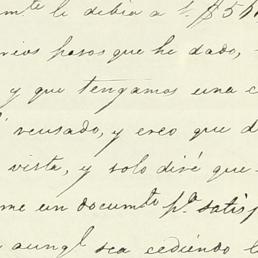 le debia a 1. $5
pasos que he dado,
y que tengamos una c
reusado, y creo que d
vista, y solo diré que
me un documto pa satisf
aunql sea cediendo l